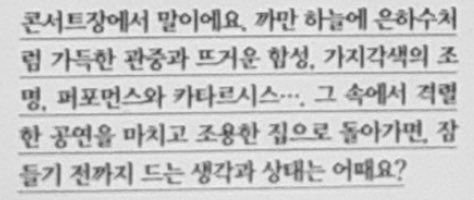 콘서트장에서 말이에요. 까만 하늘에 은하수처
럼 가득한 관중과 뜨거운 함성, 가지각색의 조
명, 퍼포먼스와 카타르시스…. 그 속에서 격렬
한 공연을 마치고 조용한 집으로 돌아가면, 잠
들기 전까지 드는 생각과 상태는 어때요?